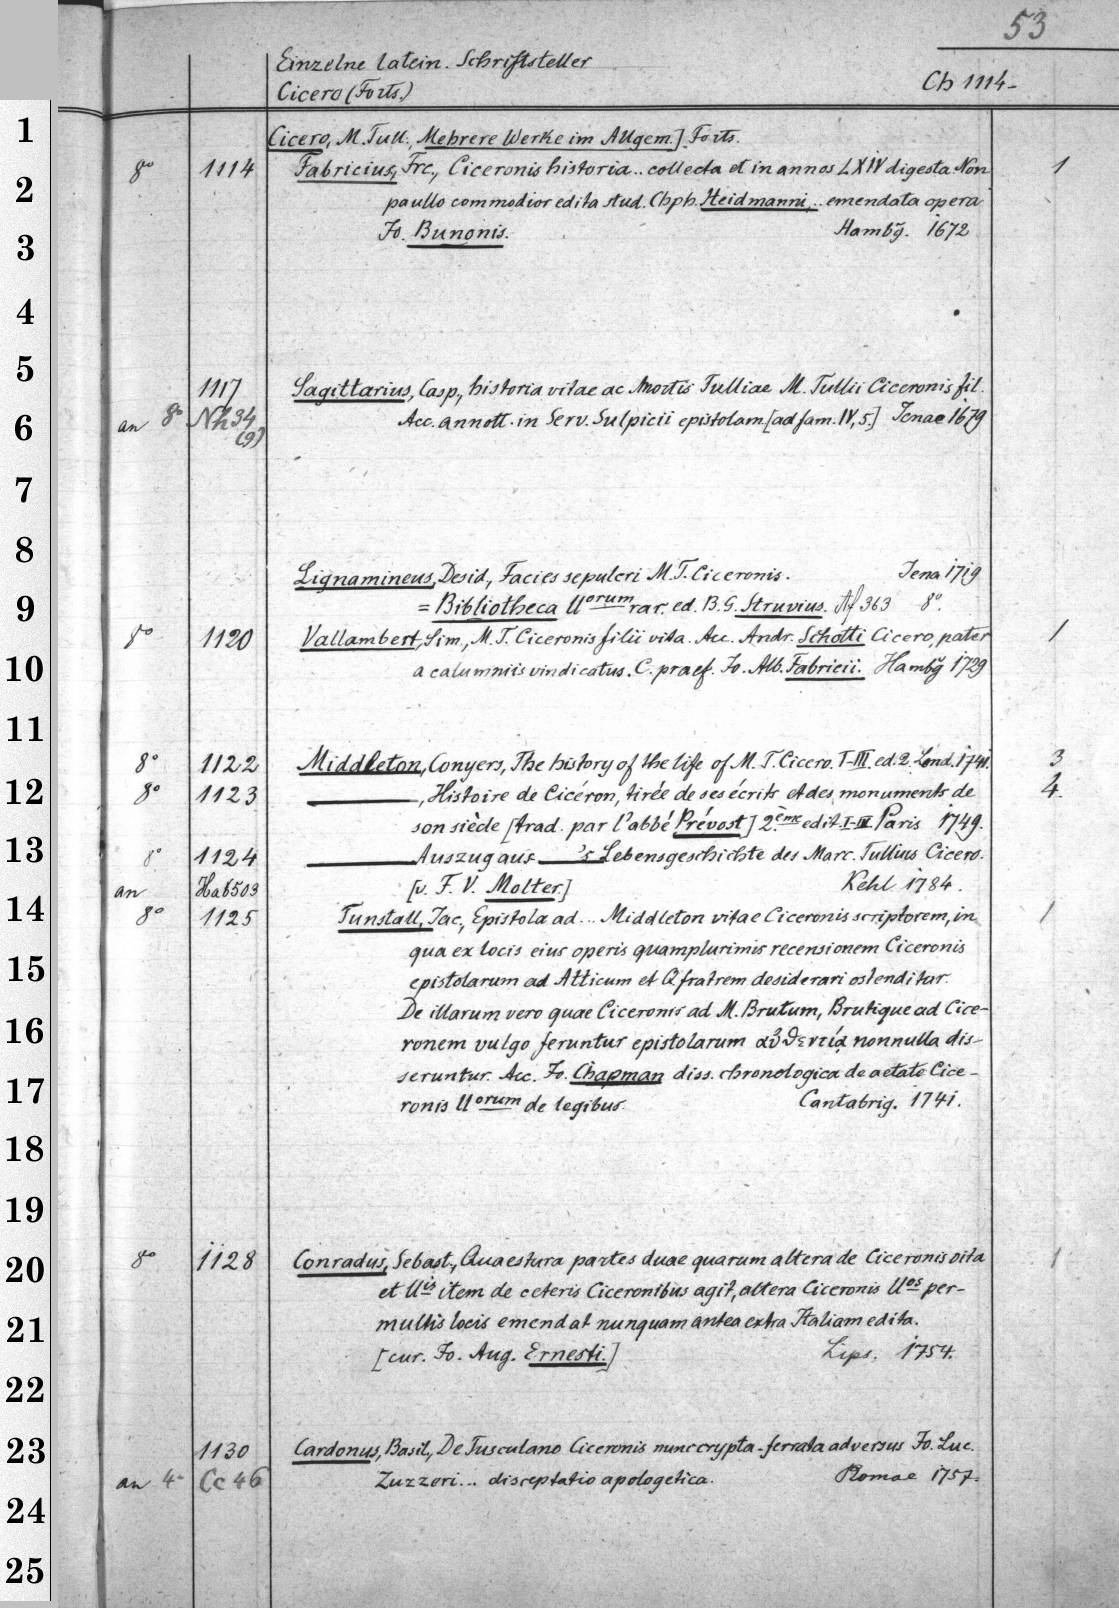 53
Einzelne latein. Schriftsteller
Cicero (Forts.) Ch 1114-
1
Cicero, M. Tull., Mehrere Werke im Allgem.] Forts.
8° 1114 Fabricius, Frc., Ciceronis historia .. collecta et in annos LXIV digesta Non 1
2
paullo commodior edita stud. Chph. Heidmanni, .. emendata opera
3
Jo. Bunonis. Hambg. 1672
4
5
1117 Sagittarius, Casp., historia vitae ac mortis Tulliae M. Tullii Ciceronis fil.
6
an 8° Nh 34 Acc. annott. in Serv. Sulpicii epistolam [ad fam. IV, 5.] Jenae 1679
(9)
7
8
Lignamineus, Desid., Facies sepulcri M. T. Ciceronis. Jena 1719
9
= Bibliotheca ll orum rar. ed. B. G. Struvius. Af 363 8°.
8° 1120 Vallambert, Sim., M. T. Ciceronis filii vita. Acc. Andr. Schotti Cicero, pater 1
10
a calumniis vindicatus. C. praef. Jo. Alb. Fabricii. Hambg 1729
11
8° 1122 Middleton, Conyers, The history of the life of M. T. Cicero. I-III. ed. 2. Lond. 1741. 3
12
8° 1123 ———, Histoire de Cicéron, tirée de ses écrits et des monuments de 4.
son siède [trad. par l'abbé Prévost] 2.ème edit. I-IV Paris 1749.
13
8° 1124 ——— Auszug aus ——'s Lebensgeschichte des Marc. Tullius Cicero.
an Ha 6503 [v. F. V. Molter.] Kehl 1784.
14
8° 1125 Tunstall, Jac., Epistola ad ... Middleton vitae Ciceronis scriptorem, in 1
qua ex locis eius operis quamplurimis recensionem Ciceronis
15
epistolarum ad Atticum et Q fratrem desiderari ostenditur.
De illarum vero quae Ciceronis ad M. Brutum, Brutique ad Cice-
16
ronem vulgo feruntur epistolarum αὐθεντίᾳ nonnulla dis-
seruntur. Acc. Jo. Chapman diss. chronologica de aetate Cice-
17
ronis ll orum de legibus. Cantabrig. 1741.
18
19
8° 1128 Conradus, Sebast., Quaestura partes duae quarum altera de Ciceronis vita 1
20
et ll is item de ceteris Ciceronibus agit, altera Ciceronis ll os per-
21
multis locis emendat nunquam antea extra Italiam edita.
[cur. Jo. Aug. Ernesti.] Lips. 1754.
22
23
1130 Cardonus, Basil., De Tusculano Ciceronis nunc crypta-ferrata adversus Jo. Luc.
an 4° Cc 46 Zuzzeri... disceptatio apologetica. Romae 1757.
24
25